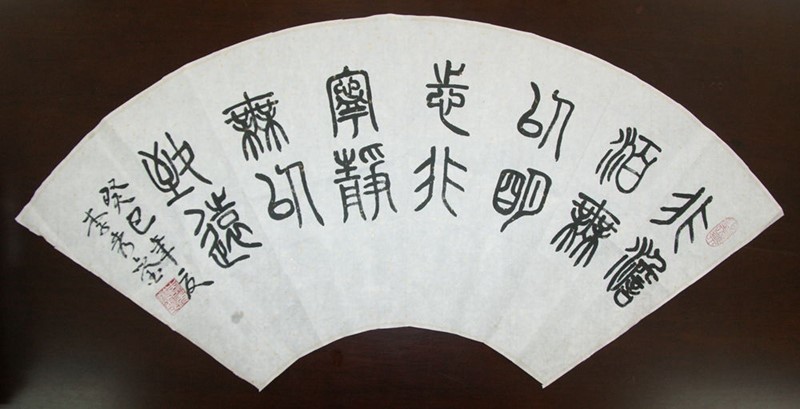 非澹
泊無
以明
志非
寧靜
無以
致遠
癸巳年夏
李秀